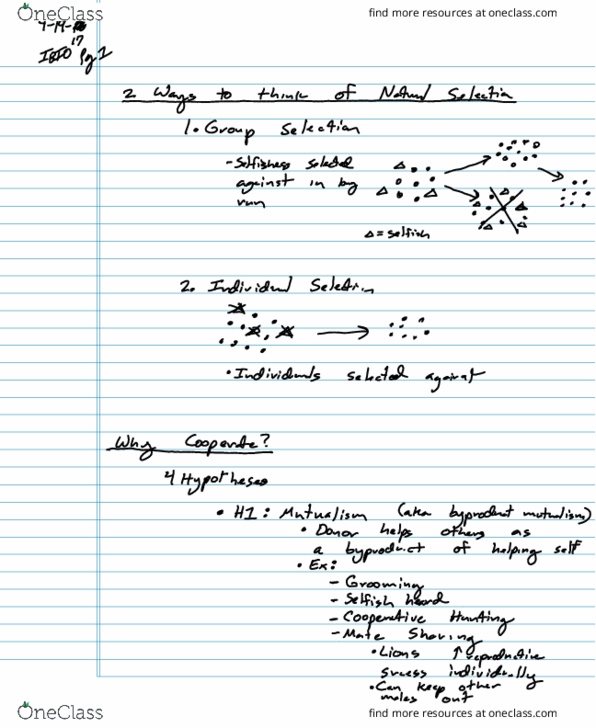 OneClass
find more resources at oneclass.com
4-19-17
IBIO Pg.1
2 Ways to think of Natural Selection
1. Group Selection
- Selfishness selected
against in big
run
Δ = selfish
2. Individual Selection
• Individuals selected against
Why Cooperate?
4 Hypotheses
• H1: Mutualism (aka byproduct mutualism)
• Donor helps others as
a byproduct of helping self
• Ex:
- Grooming
- Selfish heard
- Cooperative Hunting
- Mate Sharing
• Lions ↑ reproductive
sucess individually
• Can keep other
males out
OneClass
find more resources at oneclass.com